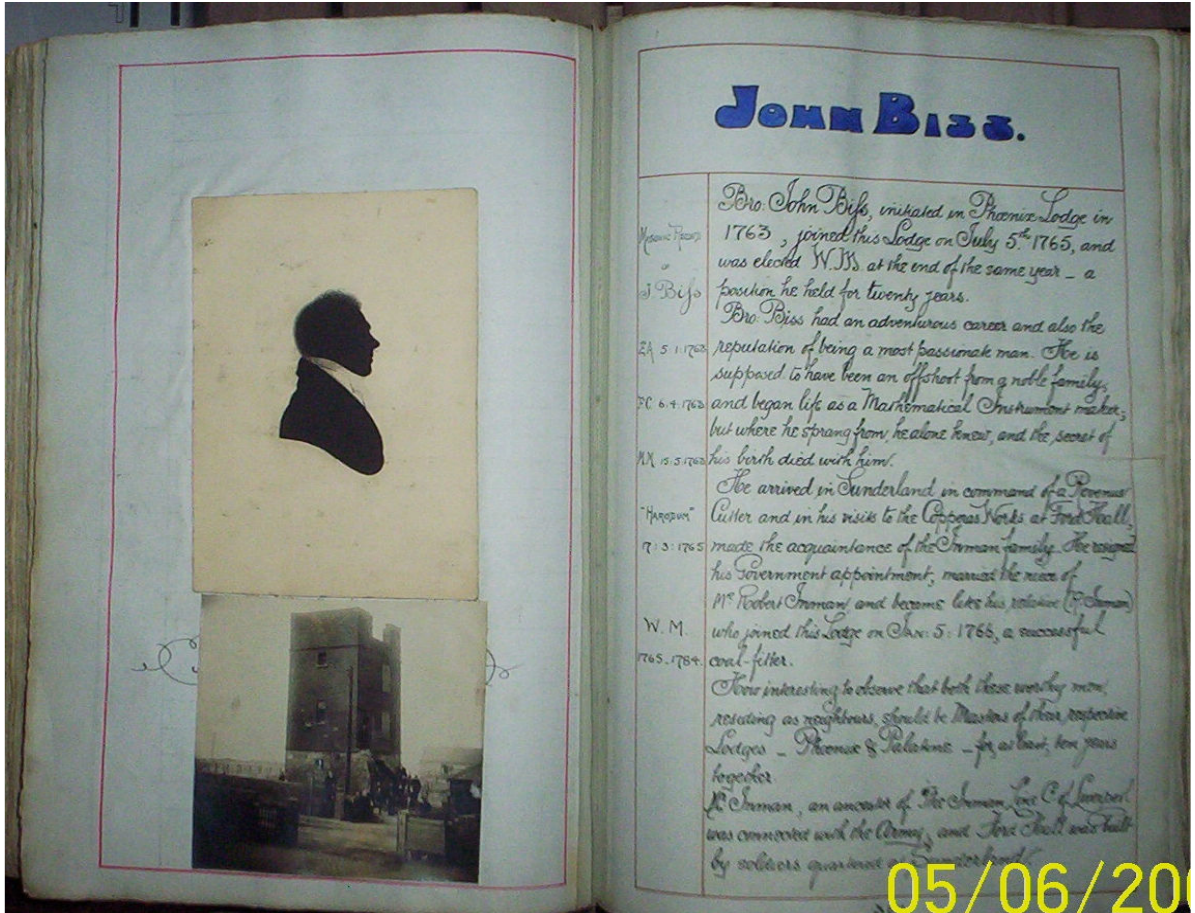 JOHN BISS.
Bro: John Biſs, initiated in Phœnix Lodge in
1763, joined this Lodge on July 5th 1765, and
was elected W.M. at the end of the same year – a
position he held for twenty years.
Bro: Biss had an adventurous career and also the
reputation of being a most passionate man. He is
supposed to have been an offshoot from a noble family,
and began life as a Mathematical Instrument maker;
but where he sprang from, he alone knew, and the secret of
his birth died with him.
He arrived in Sunderland in command of a Revenue
Cutter and in his visits to the Copperas Works at Ford Hall,
made the acquaintance of the Inman family. He resigned
his Government appointment, married the niece of
Mr Robert Inman, and became like his relative (R. Inman)
who joined this Lodge on Jan: 5: 1768, a successful
coal-fitter.
How interesting to observe that both these worthy men,
residing as neighbours, should be Masters of their respective
Lodges – Phœnix & Palatine – for, at least, ten years
together.
R. Inman, an ancestor of The Inman Line Co of Liverpool
was connected with the Army, and Ford Hall was built
by soldiers quartered at Sunderland.
Masonic Record
of
J. Biſs
EA 5.1.1763
FC 6.4.1763
MM 15.5.1763
"HARODUM"
17:3:1765
W. M.
1765-1784.
05/06/200